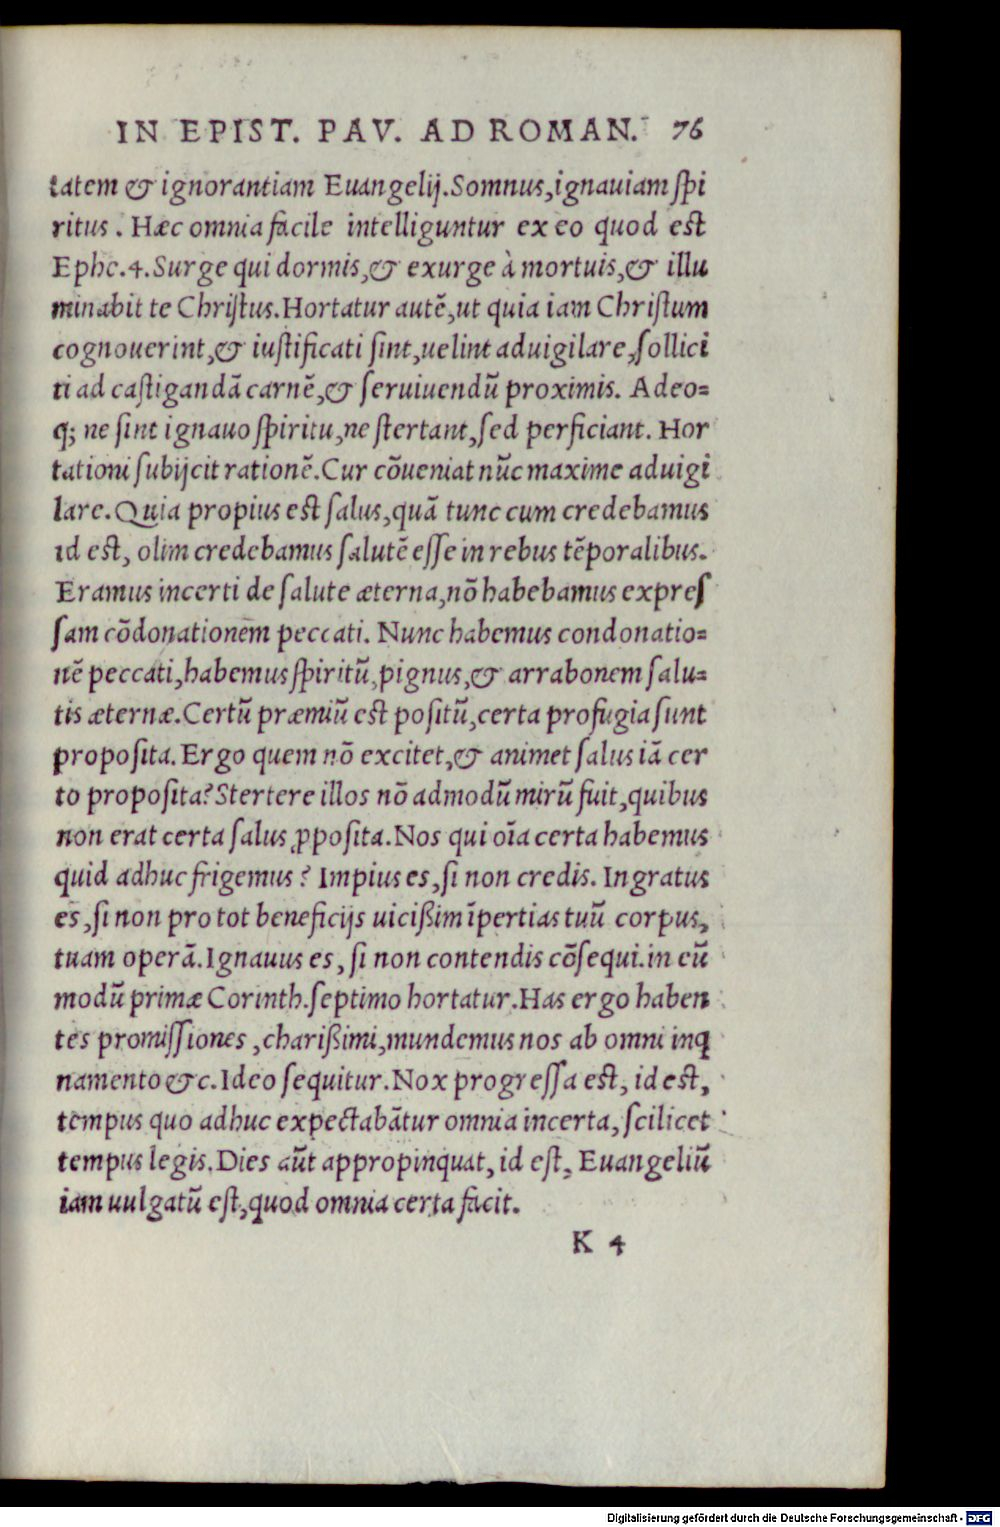 IN EPIST. PAV. AD ROMAN. 76
tatem & ignorantiam Euangelij. Somnus, ignauiam ſpi
ritus. Hæc omnia facile intelliguntur ex eo quod est
Ephe. 4. Surge qui dormis, & exurge à mortuis, & illu
minabit te Chriſtus. Hortatur autẽ, ut quia iam Chriſtum
cognouerint, & iuſtificati ſint, uelint aduigilare, ſollici
ti ad caſtigandã carnẽ, & ſeruiuendũ proximis. Adeo=
q; ne ſint ignauo ſpiritu, ne ſtertant, ſed perficiant. Hor
tationi ſubijcit rationẽ. Cur cõueniat nũc maxime aduigi
lare. Quia propius est ſalus, quã tunc cum credebamus
id est, olim credebamus ſalutẽ eſſe in rebus tẽporalibus.
Eramus incerti de ſalute æterna, nõ habebamus expreſ
ſam cõdonationem peccati. Nunc habemus condonatio=
nẽ peccati, habemus ſpiritũ, pignus, & arrabonem ſalu=
tis æternæ. Certũ præmiũ est poſitũ, certa profugia ſunt
propoſita. Ergo quem nõ excitet, & animet ſalus iã cer
to propoſita? Stertere illos nõ admodũ mirũ fuit, quibus
non erat certa ſalus ꝓpoſita. Nos qui oĩa certa habemus
quid adhuc frigemus? Impius es, ſi non credis. Ingratus
es, ſi non pro tot beneficijs uicißim ĩpertias tuũ corpus,
tuam operã. Ignauus es, ſi non contendis cõſequi. in eũ
modũ primæ Corinth. ſeptimo hortatur. Has ergo haben
tes promiſſiones, charißimi, mundemus nos ab omni inꝗ
namento &c. Ideo ſequitur. Nox progreſſa est, id est,
tempus quo adhuc expectabãtur omnia incerta, ſcilicet
tempus legis. Dies aũt appropinquat, id eſt, Euangeliũ
iam uulgatũ eſt, quod omnia certa facit.
K 4
Digitalisierung gefördert durch die Deutsche Forschungsgemeinschaft - DFG